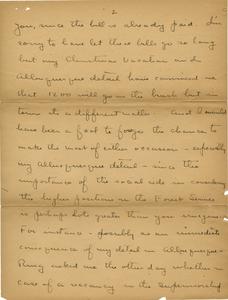 2
you, since the bill is already paid. I'm
sorry to have let these bills go so long
but my Christmas Vacation and
Albuquerque detail have convinced me
that 1200 will go in the brush but in
town its a different matter. And I would
have been a fool to forego the chance to
make the most of either occasion - especially
my Albuquerque detail - since the
importance of the social side in considering
the higher positions in the Forest Service
is perhaps lots greater than you surmise.
For instance - possibly as an immediate
consequence of my detail in Albuquerque -
Ring asked me the other day whether in
case of a vacancy in the Supervisorship